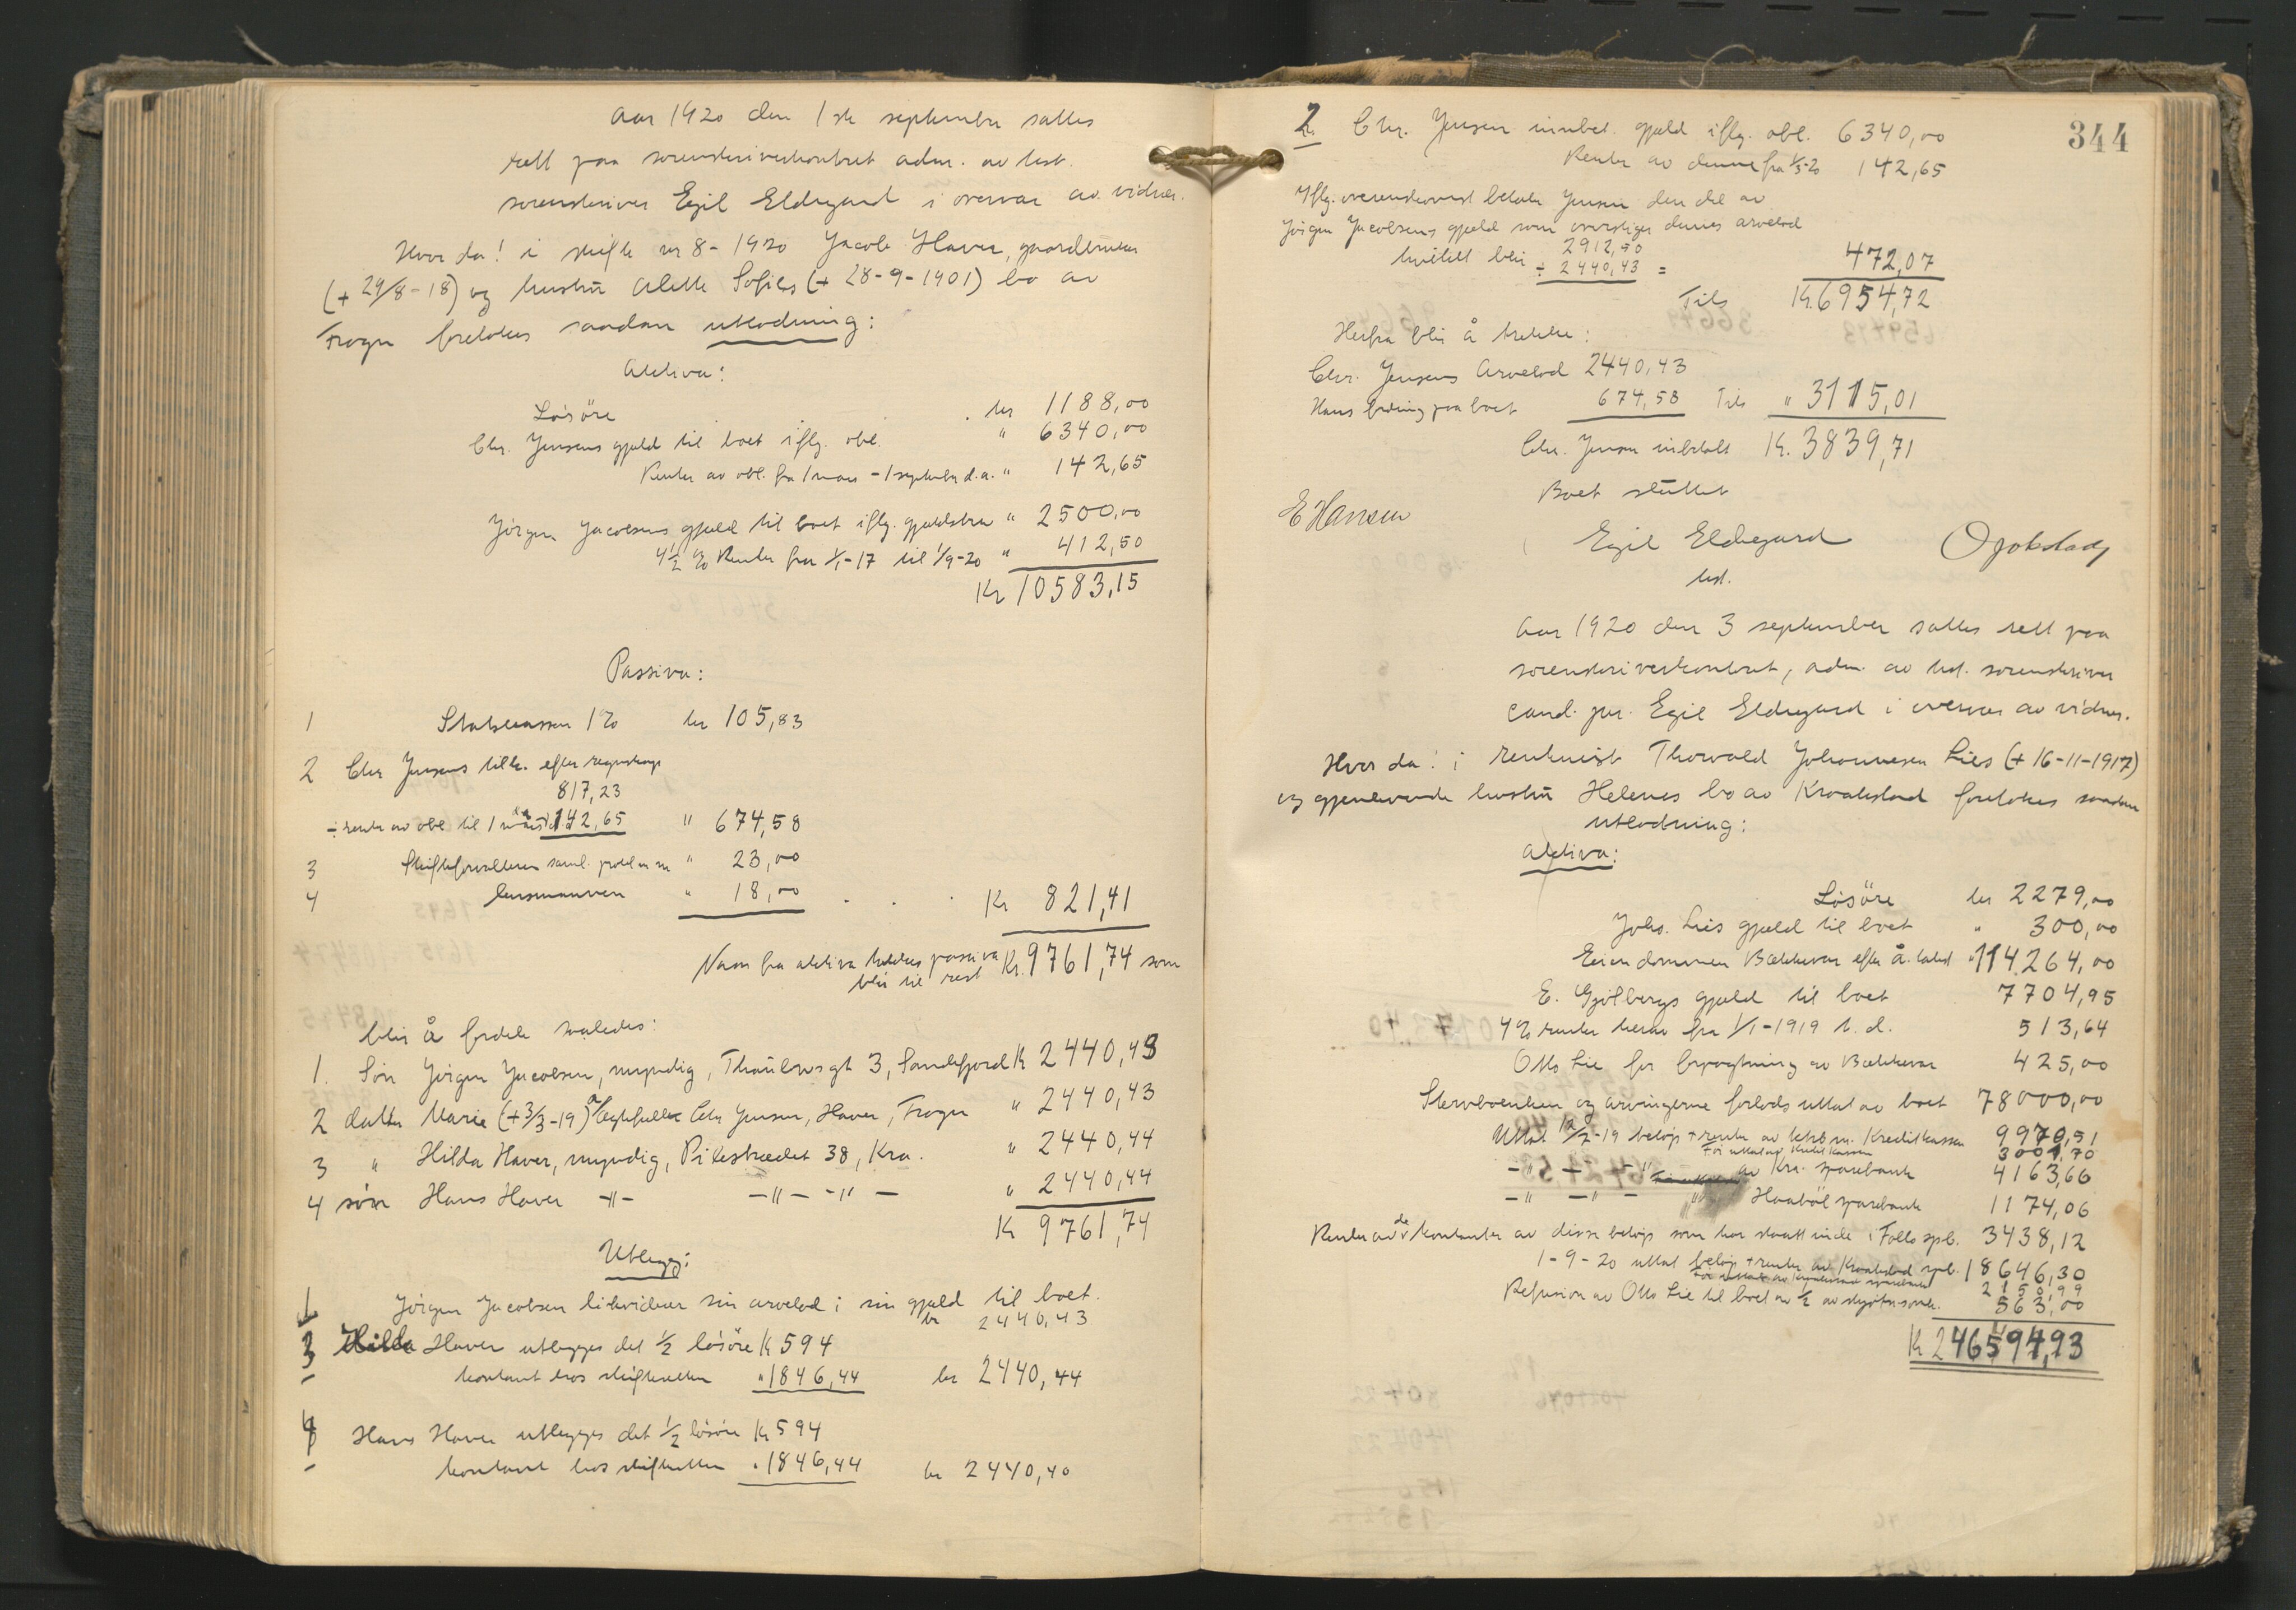 Aar 1920 den 1ste september sattes
rett paa sorenskriverkontoret adm. av kst.
sorenskriver Egil Eldegard i overvær av vidner.
Hvor da! i skifte nr 8-1920 Jacob Haver, gaardbruker
(+ 29/8-18) og hustru Alette Sofies (+ 28-9-1901) bo av
Frogn foretokes saadan utlodning:
Aktiva:
Lösöre kr 1188,00
Chr. Jensens gjeld til boet iflg. obl. " 6340,00
Renter av obl. fra 1 mars - 1 september d.a. " 142,65
Jörgen Jacobsens gjeld til boet iflg. gjeldsbrev " 2500,00
4½ % Renter fra 1/1-17 til 1/9-20 " 412,50
Kr 10583,15
Passiva:
1 Statskassen 1% kr 105,83
2 Chr Jensens tilk. efter regnskap
817,23
÷ renter av obl til 1 mars 142,65 " 674,58
3 Skifteforvalteren saml. " 23,00
4 lensmannen " 18,00 . . . Kr 821,41
Naar fra aktiva trækkes passiva Kr. 9761,74 som
blir til rest
blir å fordele saaledes:
1. Sön Jörgen Jacobsen, myndig, Thaulowsgt 3, Sandefjord K 2440,43
2 datter Marie (+ 3/3-19) Chr Jensen, Haver, Frogn " 2440,43
3 " Hilda Haver, myndig, Pilestrædet 38, Kra. " 2440,44
4 sön Hans Haver -"- -"- -"- " 2440,44
Kr 9761,74
Utlegg:
1 Jörgen Jacobsen likviderer sin arvelod i sin gjeld til boet.
kr 2440,43
3 Hilda Haver utlegges det ½ lösöre K 594
kontant hos skifteretten " 1846,44 kr 2440,44
4 Hans Haver utlegges det ½ lösöre K 594
kontant hos skifteretten " 1846,44 kr 2440,40
344
2. Chr. Jensen innbet. gjeld iflg. obl. 6340,00
Renter av denne fra 1/3-20 142,65
Iflg. overenskomst betaler Jensen den del av
Jörgen Jacobsens gjeld som overstiger dennes arvelod
2912,50
hvilket blir ÷ 2440,43 = 472,07
Tils Kr. 6954,72
Herfra blir å trekke:
Chr. Jensens Arvelod 2440,43
Hans fordring paa boet 674,58 Tils " 3115,01
Chr. Jensen inbetalt K. 3839,71
Boet sluttet
E Hansen
Egil Eldegard
kst.
Aar 1920 den 3 september sattes rett paa
sorenskriverkontoret, adm. av kst. sorenskriver
cand. jur. Egil Eldegard i overvær av vidner.
Hvor da! i Thorvald Johannesen Lies (+ 16-11-1917)
og gjenlevende hustru Helenes bo av Kraakstad foretokes saadan
utlodning:
Aktiva:
Lösöre kr 2279,00
Johs. Lies gjeld til boet " 300,00
Eiendommen Bækkevar efter å. takst " 114264,00
E. Gjölbergs gjeld til boet 7704,95
4% renter herav fra 1/1-1919 t. d. 513,64
Otto Lie for forpagtning av Bækkevar 425,00
Stervboenken og arvingerne forlods uttat av boet 78000,00
Uttat 12/7-19 beløp + renter av Kreditkassen 9970,51
For uttat av Kreditkassen 3001,70
-"- -"- av Kra. sparebank 4163,66
-"- -"- - " Haaböl sparebank 1174,06
Renter av de kontanter av disse beløp som har staatt inde i Follo spb. 3438,12
1-9-20 uttat beløp + renter av Kraakstad spb. 18646,30
2150,99
Refusion av Otto Lie til boet av ½ av 563,00
Kr 246594,93